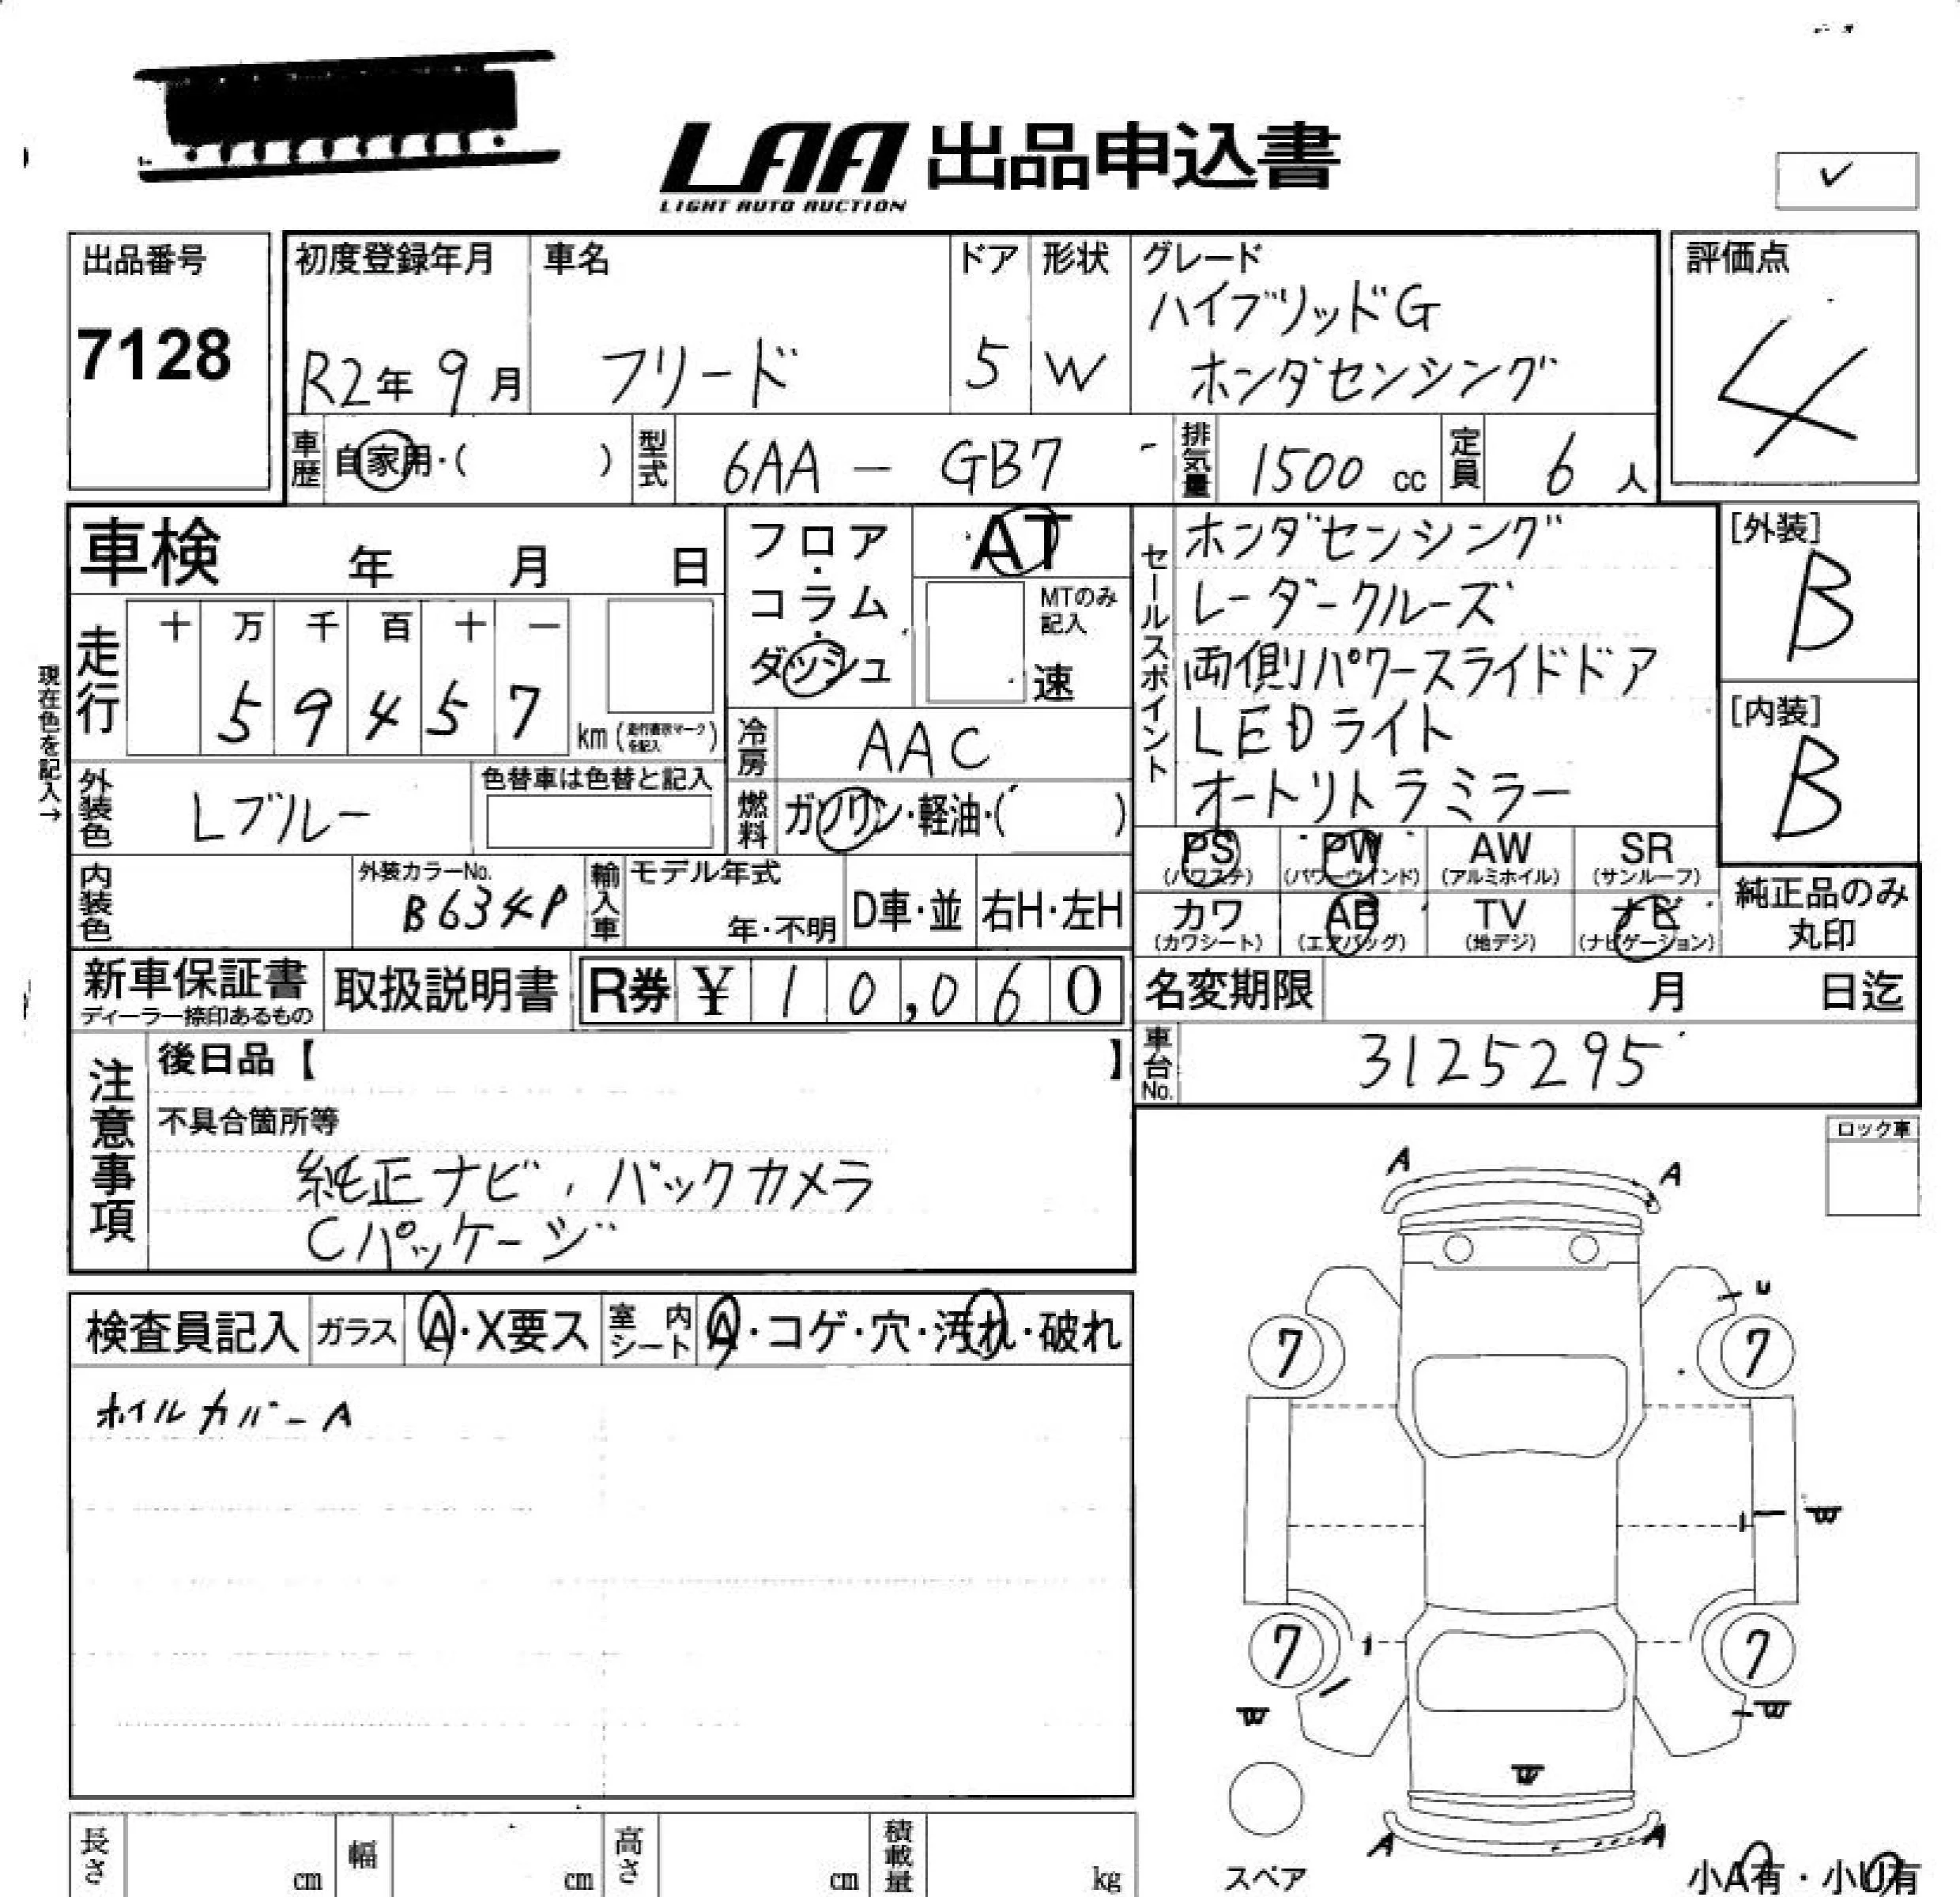 LAA 出品申込書
LIGHT AUTO AUCTION
✓
出品番号
7128
初度登録年月
R2年 9月
車名
フリード
ドア
5
形状
W
グレード
ハイブリッドG
ホンダセンシング
評価点
4
車歴
自家用・( )
型式
6AA - GB7
排気量
1500 cc
定員
6 人
車検 年 月 日
フロア・コラム・ダッシュ
AT
MTのみ記入
速
現在色を記入→
走行
十 万 千 百 十 一
5 9 4 5 7
km
冷房
AAC
燃料
ガソリン・軽油・( )
外装色
Lブルー
色替車は色替と記入
内装色
外装カラーNo.
B634P
輸入車
モデル年式
年・不明
D車・並
右H・左H
セールスポイント
ホンダセンシング
レーダークルーズ
両側パワースライドドア
LEDライト
オートリトラミラー
[外装]
B
[内装]
B
PS
(パワステ)
PW
(パワーウインド)
AW
(アルミホイル)
SR
(サンルーフ)
カワ
(カワシート)
AB
(エアバッグ)
TV
(地デジ)
ナビ
(ナビゲーション)
純正品のみ
丸印
新車保証書
ディーラー捺印あるもの
取扱説明書
R券 ¥ 10,060
名変期限 月 日迄
車台No.
3125295
注意事項
後日品【 】
不具合箇所等
純正ナビ, バックカメラ
Cパッケージ
ロック車
検査員記入
ガラス
A・X要ス
室内シート
A・コゲ・穴・汚れ・破れ
ホイルカバーA
A
A
U
7
7
W
7
7
W
W
W
A
A
スペア
小A有・小U有
長さ cm
幅 cm
高さ cm
積載量 kg